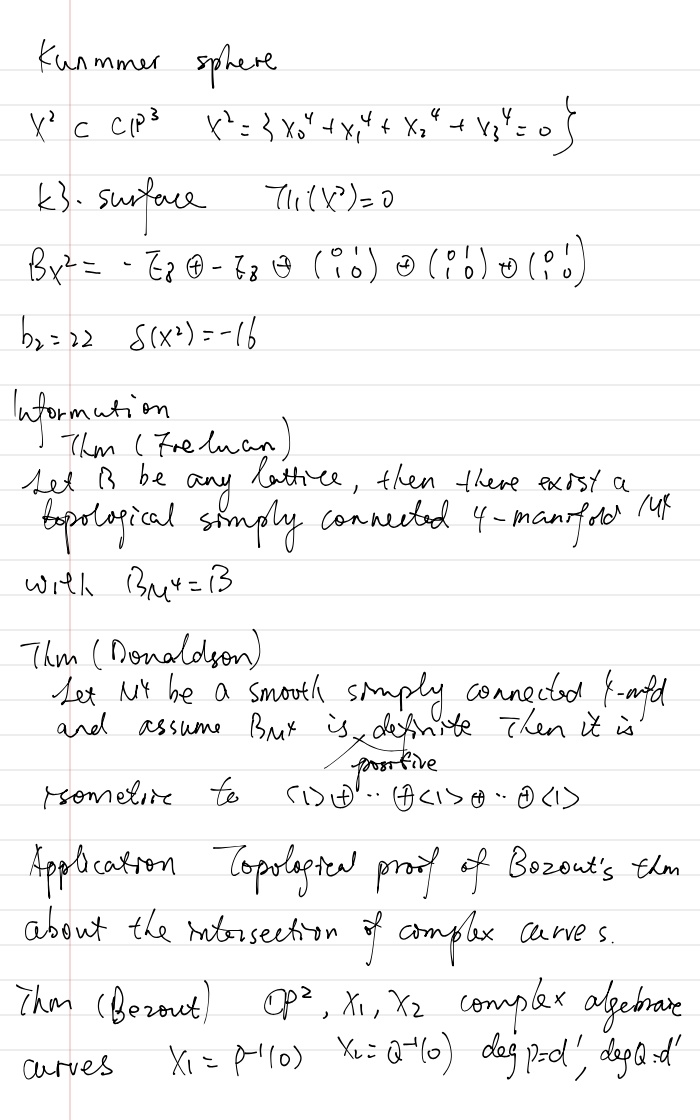 Kunmmer sphere
X² ⊂ CP³ X² = {X₀⁴ + X₁⁴ + X₂⁴ + X₃⁴ = 0}
k3. surface π₁(X²) = 0
Bx² = - E₈ ⊕ - E₈ ⊕ (0 1 1 0) ⊕ (0 1 1 0) ⊕ (0 1 1 0)
b₂ = 22 δ(X²) = -16
Information
Thm (Freeman)
Let B be any lattice, then there exist a
topological simply connected 4-manifold M⁴
with B_M⁴ = B
Thm (Donaldson)
Let M⁴ be a smooth simply connected 4-mfd
and assume B_M⁴ is definite Then it is
positive
isometric to <1> ⊕ ·· ⊕ <1> ⊕ ·· ⊕ <1>
Application Topological proof of Bozout's thm
about the intersection of complex curves.
Thm (Bezout) CP², X₁, X₂ complex algebraic
curves X₁ = P⁻¹(0) X₂ = Q⁻¹(0) deg P = d', deg Q = d'